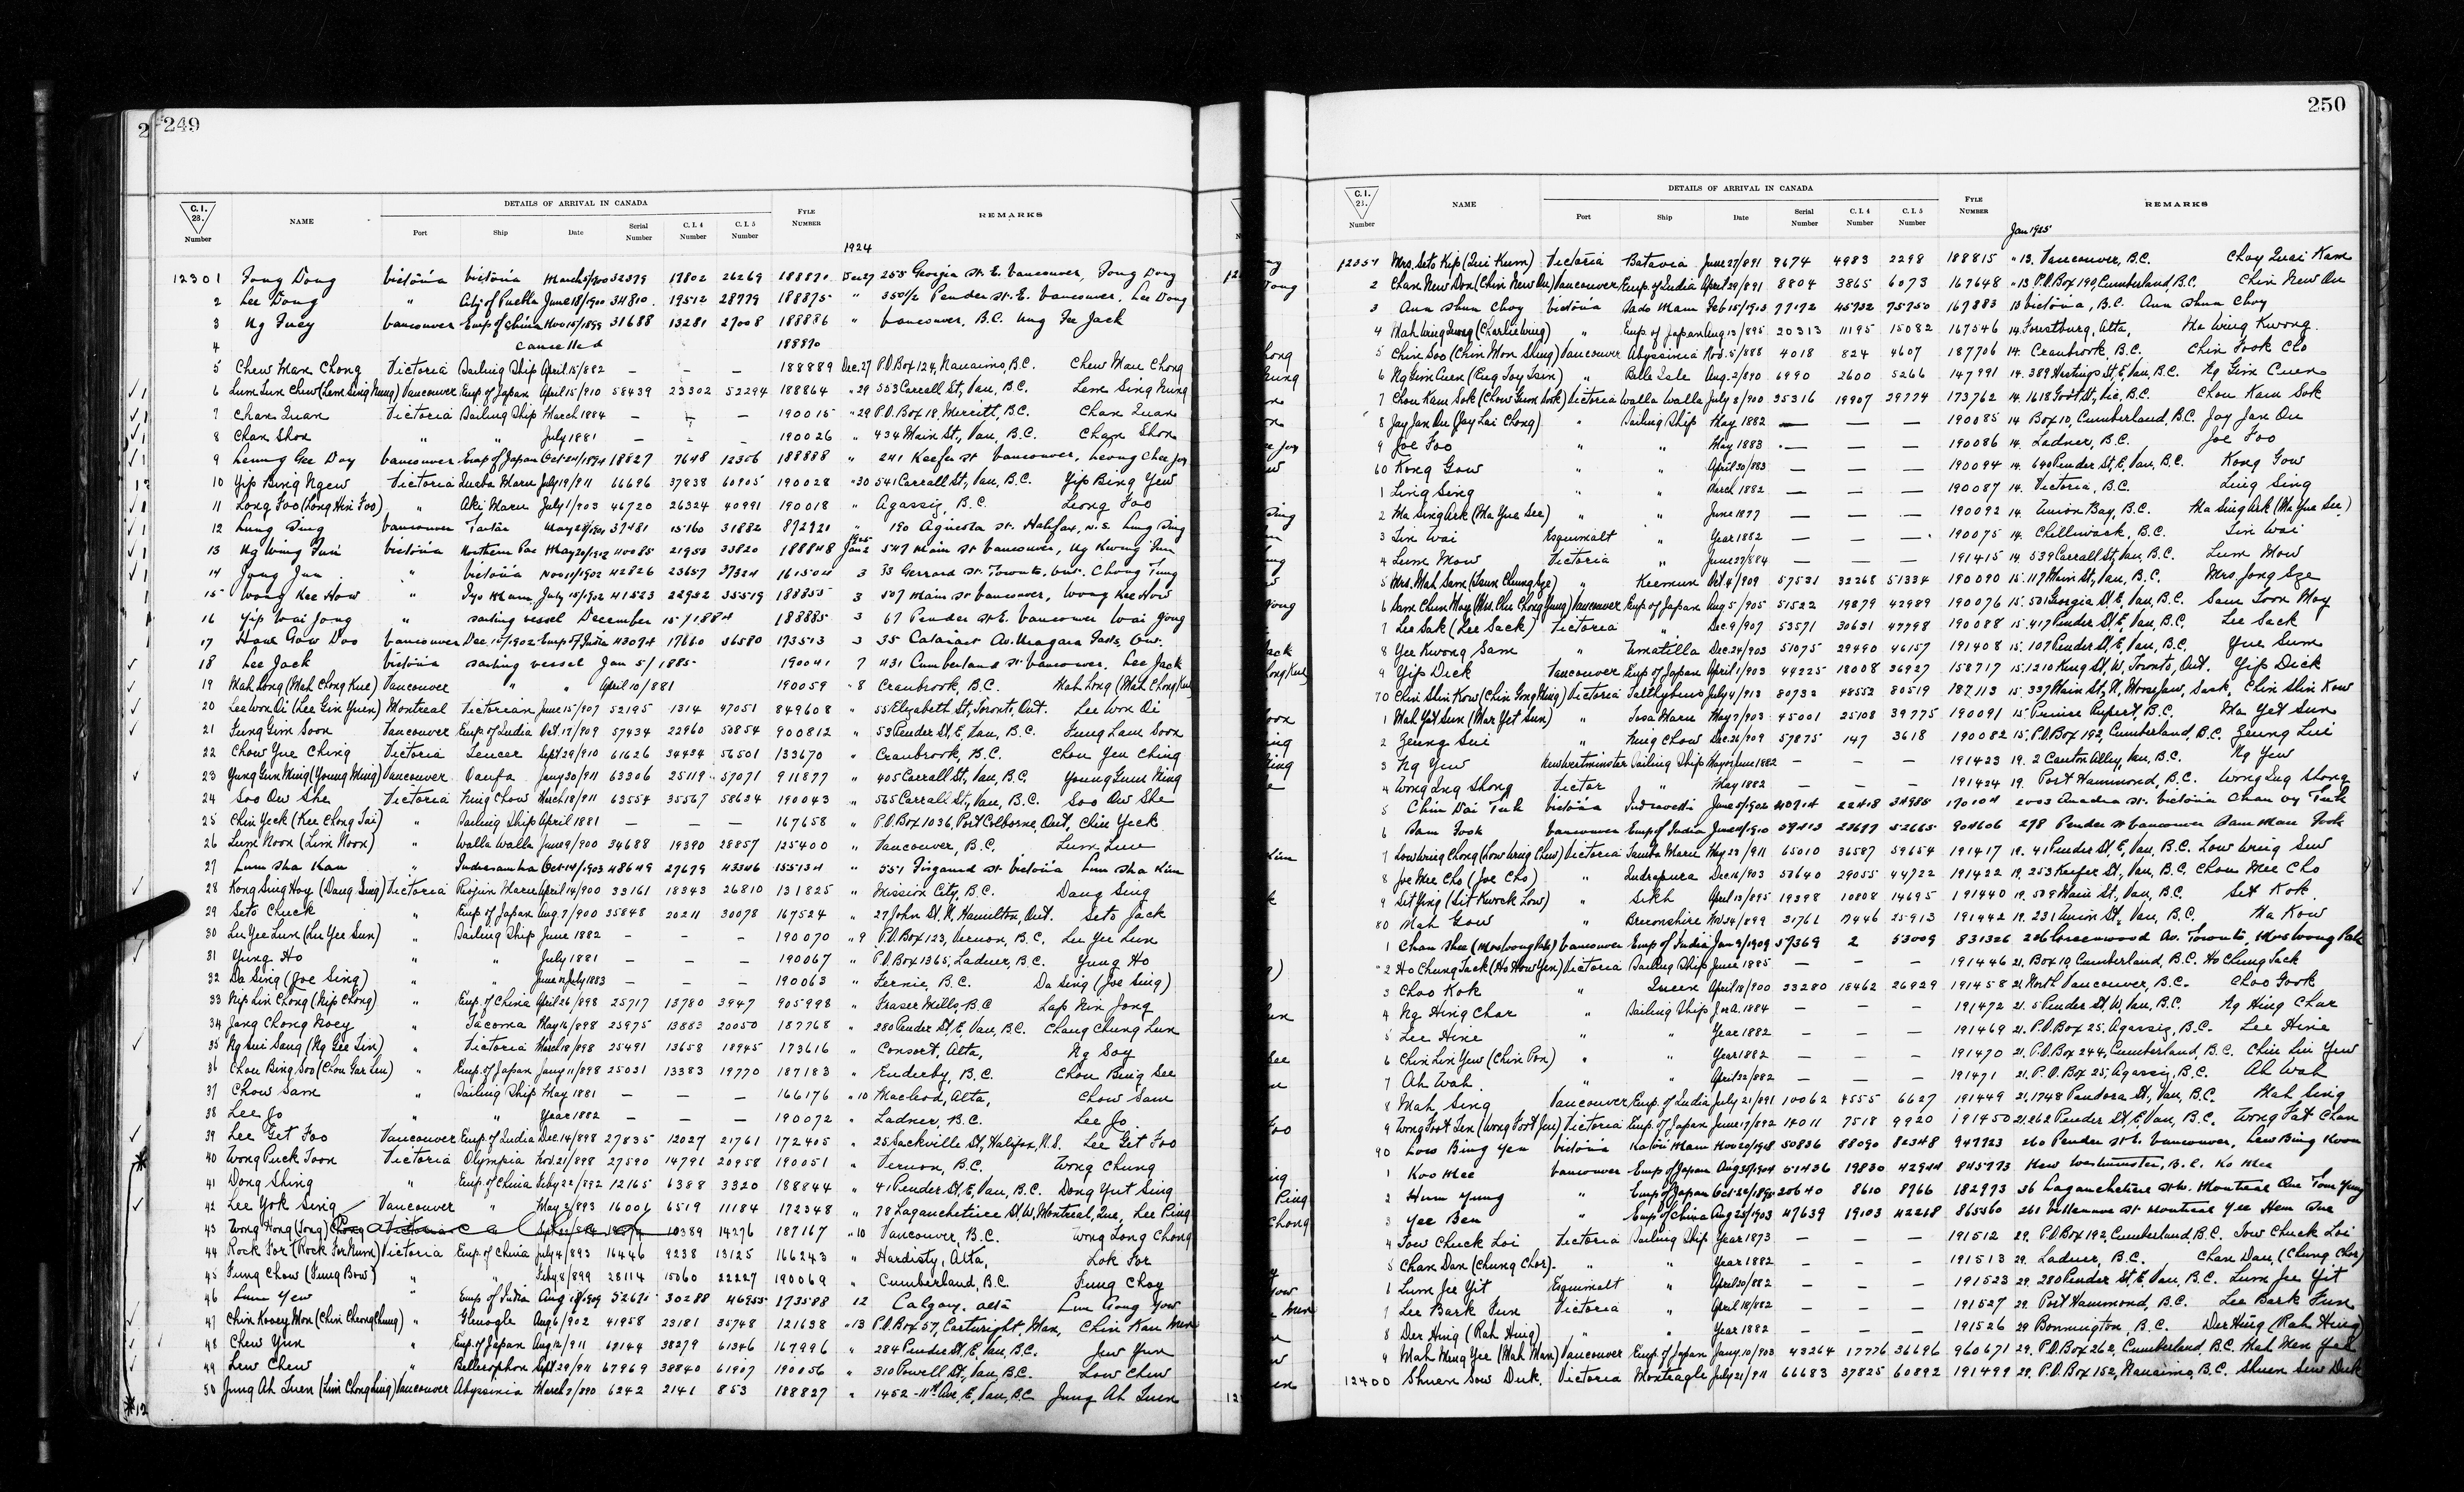 249
C.I. 28. Number NAME DETAILS OF ARRIVAL IN CANADA Port Ship Date Serial Number C.I. 4 Number C.I. 5 Number FYLE NUMBER REMARKS
1924
12301 Fong Dong Victoria Victoria March 5/900 32379 17802 26269 188870 Dec 27 255 Georgia St. E. Vancouver, Fong Dong
2 Lee Dong " City of Puebla June 18/900 34810 19512 28779 188875 " 350 1/2 Pender St. E. Vancouver, Lee Dong
3 Ng Fuey Vancouver Emp of China Nov 15/1899 31688 13281 27008 188886 " Vancouver, B.C. Ung Fee Jack
4 Cancelled 188890
5 Chew Man Chong Victoria Sailing Ship April 15/882 — — — 188889 Dec. 27 P.O. Box 124, Nanaimo, B.C. Chew Man Chong
6 Lum Sun Chew (Lem Sing Nung) Vancouver Emp. of Japan April 15/910 58439 23302 52294 188864 " 29 553 Carrall St., Van, B.C. Lem Sing Nung
7 Chan Quan Victoria Sailing Ship March 1884 — — — 190015 " 29 P.O. Box 18, Merritt, B.C. Chan Quan
8 Chan Shon " " July 1881 — — — 190026 " 434 Main St., Van, B.C. Chan Shon
9 Leung Gee Doy Vancouver Emp of Japan Oct 24/1894 18827 7648 12356 188888 " 241 Keefer St Vancouver, Leong Chee Joy
10 Yip Bing Ngew Victoria July 19/911 66696 37838 60905 190028 " 30 541 Carrall St., Van, B.C. Yip Bing Yew
11 Long Foo (Long Hin Foo) " Aki Maru July 1/903 46720 26324 40991 190018 " Agassiz, B.C. Leong Foo
12 Lung Sing Vancouver Tartar 37481 15160 31882 872721 " 190 Agricola St. Halifax, N.S. Lung Sing
1925
13 Ng Wing Fun Victoria Northern Pac May 20/902 40085 21953 33820 188848 Jan 2 547 Main St Vancouver, Ng Kwong Fun
14 Jong Jun " Victoria Nov 11/1902 42826 23657 37324 161504 3 33 Gerrard St. Toronto, Ont. Chong Tung
15 Wong Kee How " Tyo Maru July 15/1902 41523 22952 35519 188855 3 507 Main St Vancouver, Wong Kee How
16 Yip Wai Jong " sailing vessel December 15/1884 188885 3 67 Pender St E. Vancouver Wai Jong
17 Haw Gow Doo Vancouver Dec. 15/1902 Emp. of India 43074 17660 36580 173513 3 35 Cataract Av. Niagara Falls, Ont.
18 Lee Jack Victoria sailing vessel Jan 5/1885 190041 7 431 Cumberland St Vancouver, Lee Jack
19 Mah Long (Mah Chong Kue) Vancouver " " April 10/881 190059 " 8 Cranbrook, B.C. Mah Long (Mah Chong Kue)
20 Lee Won Oi (Lee Gin Yuen) Montreal Victorian June 15/907 52195 1314 47051 849608 " 55 Elizabeth St, Toronto, Ont. Lee Won Oi
21 Gung Gim Soon Vancouver Emp. of India Oct. 17/909 57434 22960 50854 900812 " 53 Pender St, E, Van, B.C. Fung Lam Soon
22 Chow Yue Ching Victoria Teucer Sept 29/910 61626 34434 56501 133670 " Cranbrook, B.C. Chou Yen Ching
23 Yung Gun Ming (Young Ming) Vancouver Oanfa Jany 30/911 63306 25119 57071 911877 " 405 Carrall St., Van, B.C. Young Gun Ning
24 Soo Ow She Victoria Ning Chow March 18/911 63554 35567 58634 190043 " 565 Carrall St., Van, B.C. Soo Ow She
25 Chin Yeck (Kee Chong Tai) " Sailing Ship April 1881 — — — 167658 " P.O. Box 1036, Port Colborne, Ont, Chin Yeck
26 Lum Noon (Lim Noon) " Walla Walla June 9/900 34688 19390 28857 125400 " Vancouver, B.C. Lum Lun
27 Lum Sha Kan " Indrasamha Oct 14/1903 48649 27679 43346 155134 " 551 Fisguard St Victoria Lum Sha Kim
28 Kong Sing Hoy (Dang Sing) Victoria Riojun Maru April 14/900 33161 18343 26810 131825 " Mission City, B.C. Dang Sing
29 Seto Chuck " Emp of Japan Aug. 7/900 35848 20211 30078 167524 " 27 John St. N, Hamilton, Ont. Seto Jack
30 Lu Yee Lun (Lu Yee Sun) " Sailing Ship June 1882 — — — 190070 " 9 P.O. Box 123, Vernon, B.C. Lu Yee Lun
31 Yung Ho " " July 1881 — — — 190067 " P.O. Box 1365, Ladner, B.C. Yung Ho
32 Da Sing (Joe Sing) " " June or July 1883 — — — 190063 " Fernie, B.C. Da Sing (Joe Sing)
33 Nip Lin Chong (Nip Chong) " Emp. of China April 26/898 25717 13780 3947 905998 " Fraser Mills, B.C Lap Nin Jong
34 Jang Chong Noey " Tacoma May 16/898 25975 13883 20050 187768 " 280 Pender St, E, Van, B.C. Chang Chung Lun
35 Ng Sui Sang (Ng Gee Sin) " Victoria March 18/898 25491 13658 18945 173616 " Consort, Alta, Ng Soy
36 Chou Bing Soo (Chou Gar Len) " Emp. of Japan Jany 11/898 25031 13383 19770 187183 " Enderby, B.C. Chou Bing See
37 Chow Sam " Sailing Ship May 1881 — — — 166176 " 10 Macleod, Alta, Chow Sam
38 Lee Jo " " Year 1882 — — — 190072 " Ladner, B.C. Lee Jo
39 Lee Get Foo Vancouver Emp. of India Dec. 14/898 27835 12027 21761 172405 " 25 Sackville St, Halifax, N.S. Lee Get Foo
40 Wong Puck Toon Victoria Olympia Nov. 21/898 27590 14791 20958 190051 " Vernon, B.C. Wong Chung
41 Dong Shing " Emp. of China Feby 22/892 12165 6388 3320 188844 " 41 Pender St, E, Van, B.C. Dong Yut Sing
42 Lee Yok Sing Vancouver " May 2/893 16001 6519 11184 172348 " 78 Lagauchetiere St, W, Montreal, Que, Lee Ping
43 Wong Hong (Long) Chong Victoria 10389 14276 187167 " 10 Vancouver, B.C. Wong Long Chong
44 Rock For (Rock For Num) Victoria Emp. of China July 4/893 16446 9238 13125 166243 " Hardisty, Alta, Lok For
45 Fung Chow (Fung Bow) " " Feby 8/899 28114 15060 22227 190069 " Cumberland, B.C. Fung Choy
46 Lum Yew " Emp of India Aug 18/909 52671 30288 46955 173588 12 Calgary, Alta Lum Gong Yow
47 Chin Kooey Mon (Chin Cheong Chung) " Glenogle Aug 6/902 41958 23181 35748 121638 " 13 P.O. Box 57, Cartwright, Man, Chin Kau Men
48 Chew Yun " Emp. of Japan Aug 12/911 38279 61346 167996 " 284 Pender St, E, Van, B.C. Jew Yun
49 Lew Chew " Bellerophon Sept. 29/911 67969 38840 61907 190056 " 310 Powell St, Van, B.C. Low Chew
50 Jung Ah Tuen (Lim Chong Ling) Vancouver Abyssinia March 3/890 6242 2141 853 188827 " 1452-11th Ave, E, Van, B.C. Jung Ah Tuen
250
C.I. 28. Number NAME DETAILS OF ARRIVAL IN CANADA Port Ship Date Serial Number C.I. 4 Number C.I. 5 Number FYLE NUMBER REMARKS
Jan 1925
12351 Mrs. Seto Kip (Qui Kum) Victoria Batavia June 27/891 9674 4983 2298 188815 " 13. Vancouver, B.C. Choy Quai Kam
2 Chan New Don (Chin New On) Vancouver Emp. of India April 29/891 8804 3865 6073 167648 " 13 P.O. Box 190, Cumberland, B.C. Chin New On
3 Ann Shun Choy Victoria Sado Maru Feb 15/1913 77172 45732 75750 167883 13 Victoria, B.C. Ann Shun Choy
4 Mah Wing Quong (Charlie Wing) " Emp. of Japan Aug. 13/895 20313 11195 15082 167546 14. Forestburg, Alta, Ma Wing Kwong
5 Chin Soo (Chin Mon Shing) Vancouver Abyssinia Nov. 5/888 4018 824 4607 187706 14. Cranbrook, B.C. Chin Fook Cho
6 Ng Gim Cuen (Eng Joy Tsin) " Belle Isle Aug. 2/890 6990 2600 5266 147991 14. 389 Hastings St, E, Van, B.C. Ng Gim Cuen
7 Chou Kam Sok (Chow Gum Sook) Victoria Walla Walla July 8/900 35316 19907 29774 173762 14. 1618 Govt St, Vic, B.C. Chou Kam Sok
8 Jay Jan On (Jay Lai Chong) " Sailing Ship May 1882 — — — 190085 14 Box 10, Cumberland, B.C. Jay Jan On
9 Joe Foo " " May 1883 — — — 190086 14. Ladner, B.C. Joe Foo
60 Kong Gow " " April 30/883 — — — 190094 14. 640 Pender St, E, Van, B.C. Kong Gow
1 Ling Sing " " March 1882 — — — 190087 14. Victoria, B.C. Ling Sing
2 Ma Sing Ark (Ma Yue See) " " June 1877 — — — 190092 14. Union Bay, B.C. Ma Sing Ark (Ma Yue See)
3 Lin Wai Esquimalt " Year 1882 — — — 190075 14. Chilliwack, B.C. Lin Wai
4 Lum Mow Victoria " June 27/884 — — — 191415 14. 539 Carrall St, Van, B.C. Lum Mow
5 Mrs. Mah Sam (Saun Chung Sze) " Keemun Oct. 4/909 57531 32268 51334 190090 15. 117 Main St., Van, B.C. Mrs. Jong Sze
6 Sam Chun Moy (Mrs. Chu Chong Yung) Vancouver Emp. of Japan Aug 5/905 51522 19879 42989 190076 15. 501 Georgia St, E, Van, B.C. Sam Toon Moy
7 Lee Sak (Lee Sack) Victoria " Dec. 9/907 53571 30631 47798 190088 15. 417 Pender St, E, Van, B.C. Lee Sack
8 Yee Kwong Sam " Umatilla Dec. 24/903 51075 29490 46157 191408 15. 107 Pender St, E, Van, B.C. Yue Sum
9 Yip Dick Vancouver Emp of Japan April 1/903 44225 18008 36927 158717 15. 1210 King St, W, Toronto, Ont. Yip Dick
70 Chin Shin Kow (Chin Gong Hing) Victoria Talthybius July 4/913 80732 48552 80519 187113 15. 337 Main St, N, Moose Jaw, Sask, Chin Shin Kow
1 Mah Yet Sun (Mar Yet Sun) " Tosa Maru May 7/903 45001 25108 39775 190091 15. Prince Rupert, B.C. Ma Yet Sun
2 Zeung Sui " Ning Chow Dec. 26/909 57875 147 3618 190082 15. P.O. Box 192, Cumberland, B.C. Zeung Lui
3 Ng Yew New Westminster Sailing Ship May or June 1882 — — — 191423 19. 2 Canton Alley, Van, B.C. Ng Yew
4 Wong Lng Shong Victor " May 1882 — — — 191424 19. Port Hammond, B.C. Wong Lug Shong
5 Chin Dai Tuk Victoria Indravelli 40714 22418 34985 170104 2003 Quadra St. Victoria Chan Oy Tuk
6 Sam Fook Vancouver Emp of India 59413 23677 52665 904606 278 Pender St Vancouver Sam Man Fook
7 Low Wing Chong (Low Wing Chew) Victoria Tamba Maru May 23/911 65010 36587 59654 191417 19. 41 Pender St, E, Van, B.C. Low Wing Sew
8 Joe Mee Cho (Joe Cho) " Indrapura Dec. 16/903 50640 29055 44722 191422 19. 253 Keefer St, Van, B.C. Chou Mee Cho
9 Sit Ying (Sit Kwock Low) " Sikh April 13/895 19398 10808 14695 191440 19. 509 Main St., Van, B.C. Sit Kok
80 Mah Gow " Breconshire Nov. 24/899 31761 17446 25913 191442 19. 231 Union St, Van, B.C. Ma Kow
1 Chan Shee (Mrs Wong Pak) Vancouver Emp of India Jan 9/1909 57369 2 53009 831326 206 Greenwood Av. Toronto, Mrs Wong Pak
2 Ho Chung Jack (Ho How Yen) Victoria Sailing Ship June 1885 — — — 191446 21. Box 19, Cumberland, B.C. Ho Chung Jack
3 Choo Kok " Queen April 18/900 33280 18462 26929 191458 21. North Vancouver, B.C. Choo Gook
4 Ng Hing Char " Sailing Ship Jan. 1884 — — — 191472 21. 5 Pender St, W, Van, B.C. Ng Hing Char
5 Lee Hine " " Year 1882 — — — 191469 21. P.O. Box 25, Agassiz, B.C. Lee Hine
6 Chin Lin Yew (Chin Pon) " " Year 1882 — — — 191470 21. P.O. Box 244, Cumberland, B.C. Chin Lin Yew
7 Ah Wah " " — — — 191471 21. P.O. Box 25, Agassiz, B.C. Ah Wah
8 Mah Sing Vancouver Emp. of India July 21/891 10062 4555 6627 191449 21. 1748 Pandora St., Van, B.C. Mah Sing
9 Wong Foot Jen (Wong Fort Jen) Victoria Emp. of Japan June 17/892 14011 7518 9920 191450 21. 262 Pender St, E, Van, B.C. Wong Fat Chan
90 Low Bing Yen Victoria Katori Maru Nov 20/1918 50836 88090 82348 947723 260 Pender St E. Vancouver, Lew Bing Kwon
1 Koo Mee Vancouver Emp of Japan Aug 31/1904 51436 19830 42944 845773 New Westminster, B.C. Ko Mee
2 Hum Yung " Emp of Japan 20640 8610 8766 182973 36 Lagauchetiere St W. Montreal Que Tom Yung
3 Yee Ben " Emp of China Aug 25/1903 47639 19103 42218 865460 261 Villeneuve St Montreal Yee Hem Que
4 Tow Chuck Loi Victoria Sailing Ship Year 1873 — — — 191512 29. P.O. Box 192, Cumberland, B.C. Tow Chuck Loi
5 Chan Dan (Chung Chor) " " Year 1882 — — — 191513 29. Ladner, B.C. Chan Dan (Chung Chor)
6 Lum Jee Yit Esquimalt " April 20/882 — — — 191523 29. 280 Pender St, E, Van, B.C. Lum Jee Yit
7 Lee Bark Fun Victoria " April 18/882 — — — 191527 29. Port Hammond, B.C. Lee Bark Fun
8 Der Hing (Rah Hing) " " Year 1882 — — — 191526 29 Bonnington, B.C. Der Hing (Rah Hing)
9 Mah Meng Yee (Mah Man) Vancouver Emp. of Japan Jany. 10/903 43264 17776 36696 960671 29. P.O. Box 262, Cumberland, B.C. Mah Men Yee
12400 Shuen Sow Duk Victoria Monteagle July 21/911 66683 37825 60892 191499 29. P.O. Box 152, Nanaimo, B.C. Shuen Sew Duk